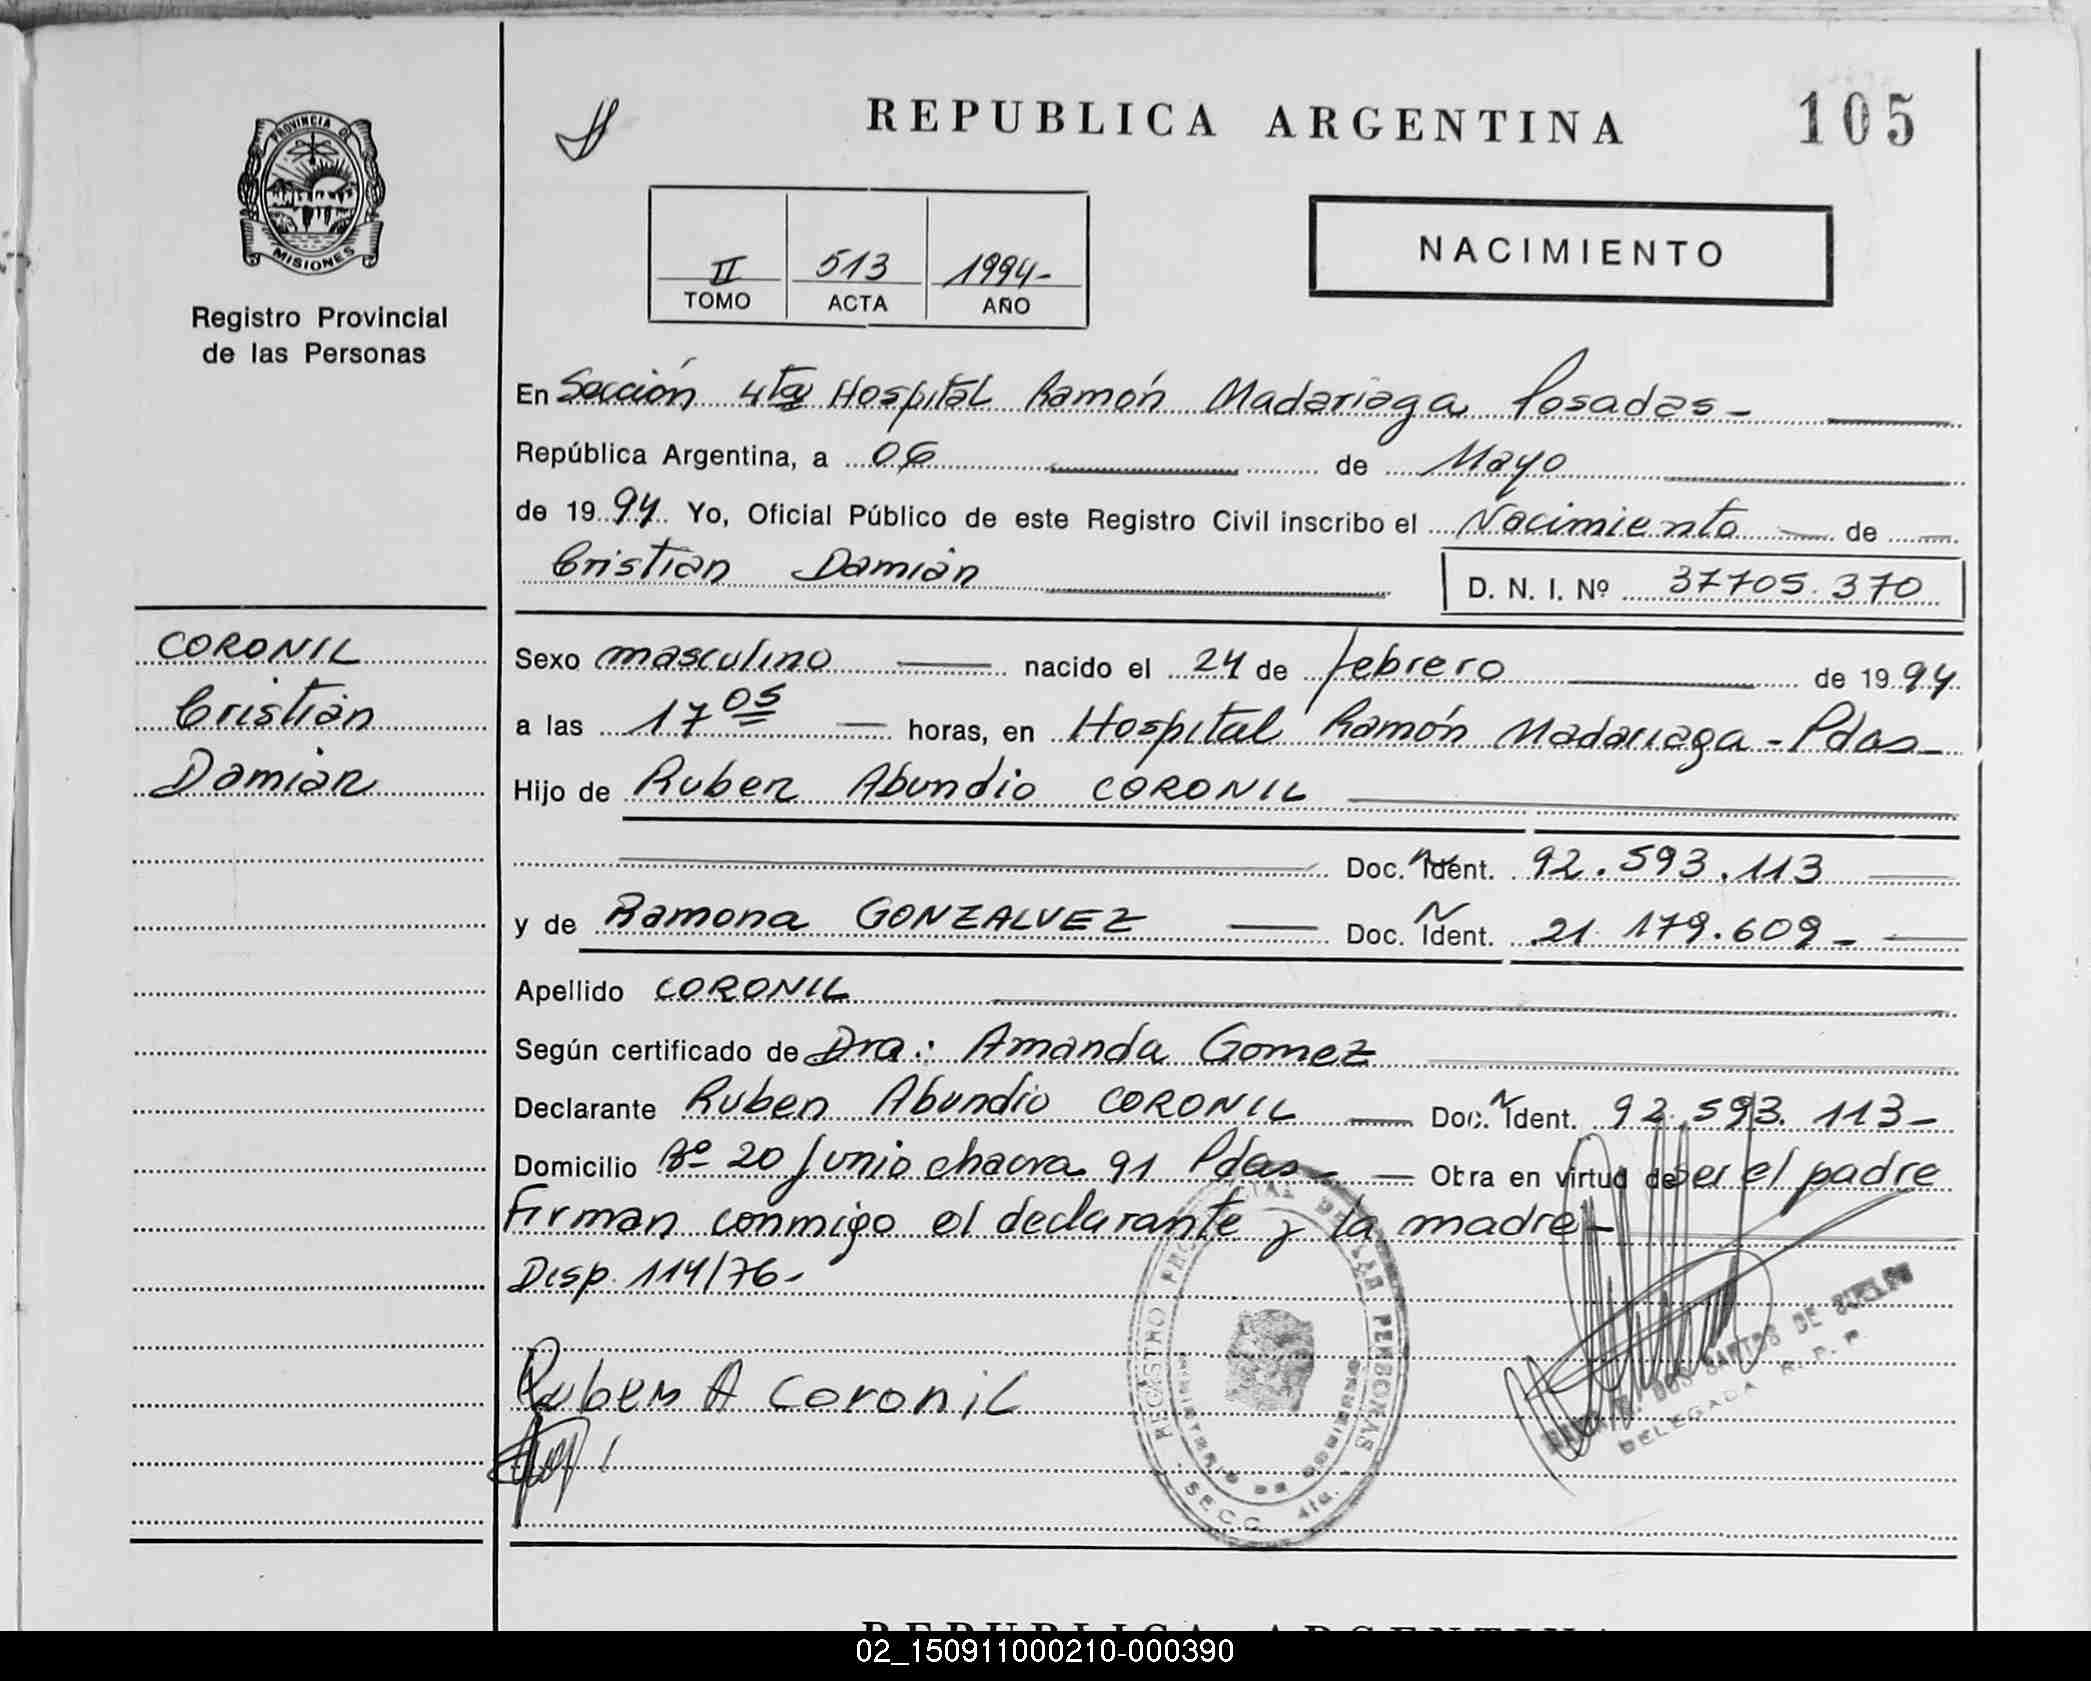 REPUBLICA ARGENTINA
105
PROVINCIA DE
MISIONES
Registro Provincial
de las Personas
II 513 1994-
TOMO ACTA AÑO
NACIMIENTO
En Sección 4ta Hospital Ramón Madariaga Posadas-
República Argentina, a 06 de Mayo
de 1994 Yo, Oficial Público de este Registro Civil inscribo el Nacimiento de
Cristian Damián
D. N. I. Nº 37705.370
CORONIL
Cristian
Damian
Sexo masculino nacido el 24 de febrero de 1994
a las 17 05 horas, en Hospital Ramón Madariaga - Pdas-
Hijo de Ruben Abundio CORONIL
Doc. N Ident. 92.593.113
y de Ramona GONZALVEZ Doc. N Ident. 21 179.609-
Apellido CORONIL
Según certificado de Dra.: Amanda Gomez
Declarante Ruben Abundio CORONIL Doc. N Ident. 92.593.113-
Domicilio Bº 20 Junio chacra 91 Pdas- Obra en virtud de ser el padre
Firman conmigo el declarante y la madre-
Disp. 114/76-
Ruben A Coronil
REGISTRO PROVINCIAL DE LAS PERSONAS
MINISTERIO DE GOBIERNO
SECC. 4ta.
DOS SANTOS DE
DELEGADA R. P. P.
REPUBLICA ARGENTINA
02_150911000210-000390